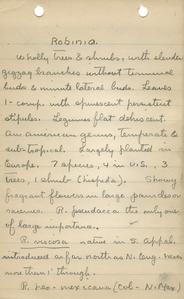 Robinia.
Wholly trees & shrubs, with slender
zigzag branches without terminal
buds & minute lateral buds. Leaves
1-comp. with spinescent persistent
stipules. Legumes flat dehiscent.
An American genus, Temperate &
sub-tropical. Largely planted in
Europe. 7 species, 4 in U.S., 3
trees, 1 shrub (hispida). Showy
fragrant flowers in large panicles or
racemes. R. pseudacca the only one
of large importance.
R. viscosa native in S. Appal.
introduced as far north as N. Eng. Never
more than 1' through.
R. neo-mexicana (Col-N.Mex)